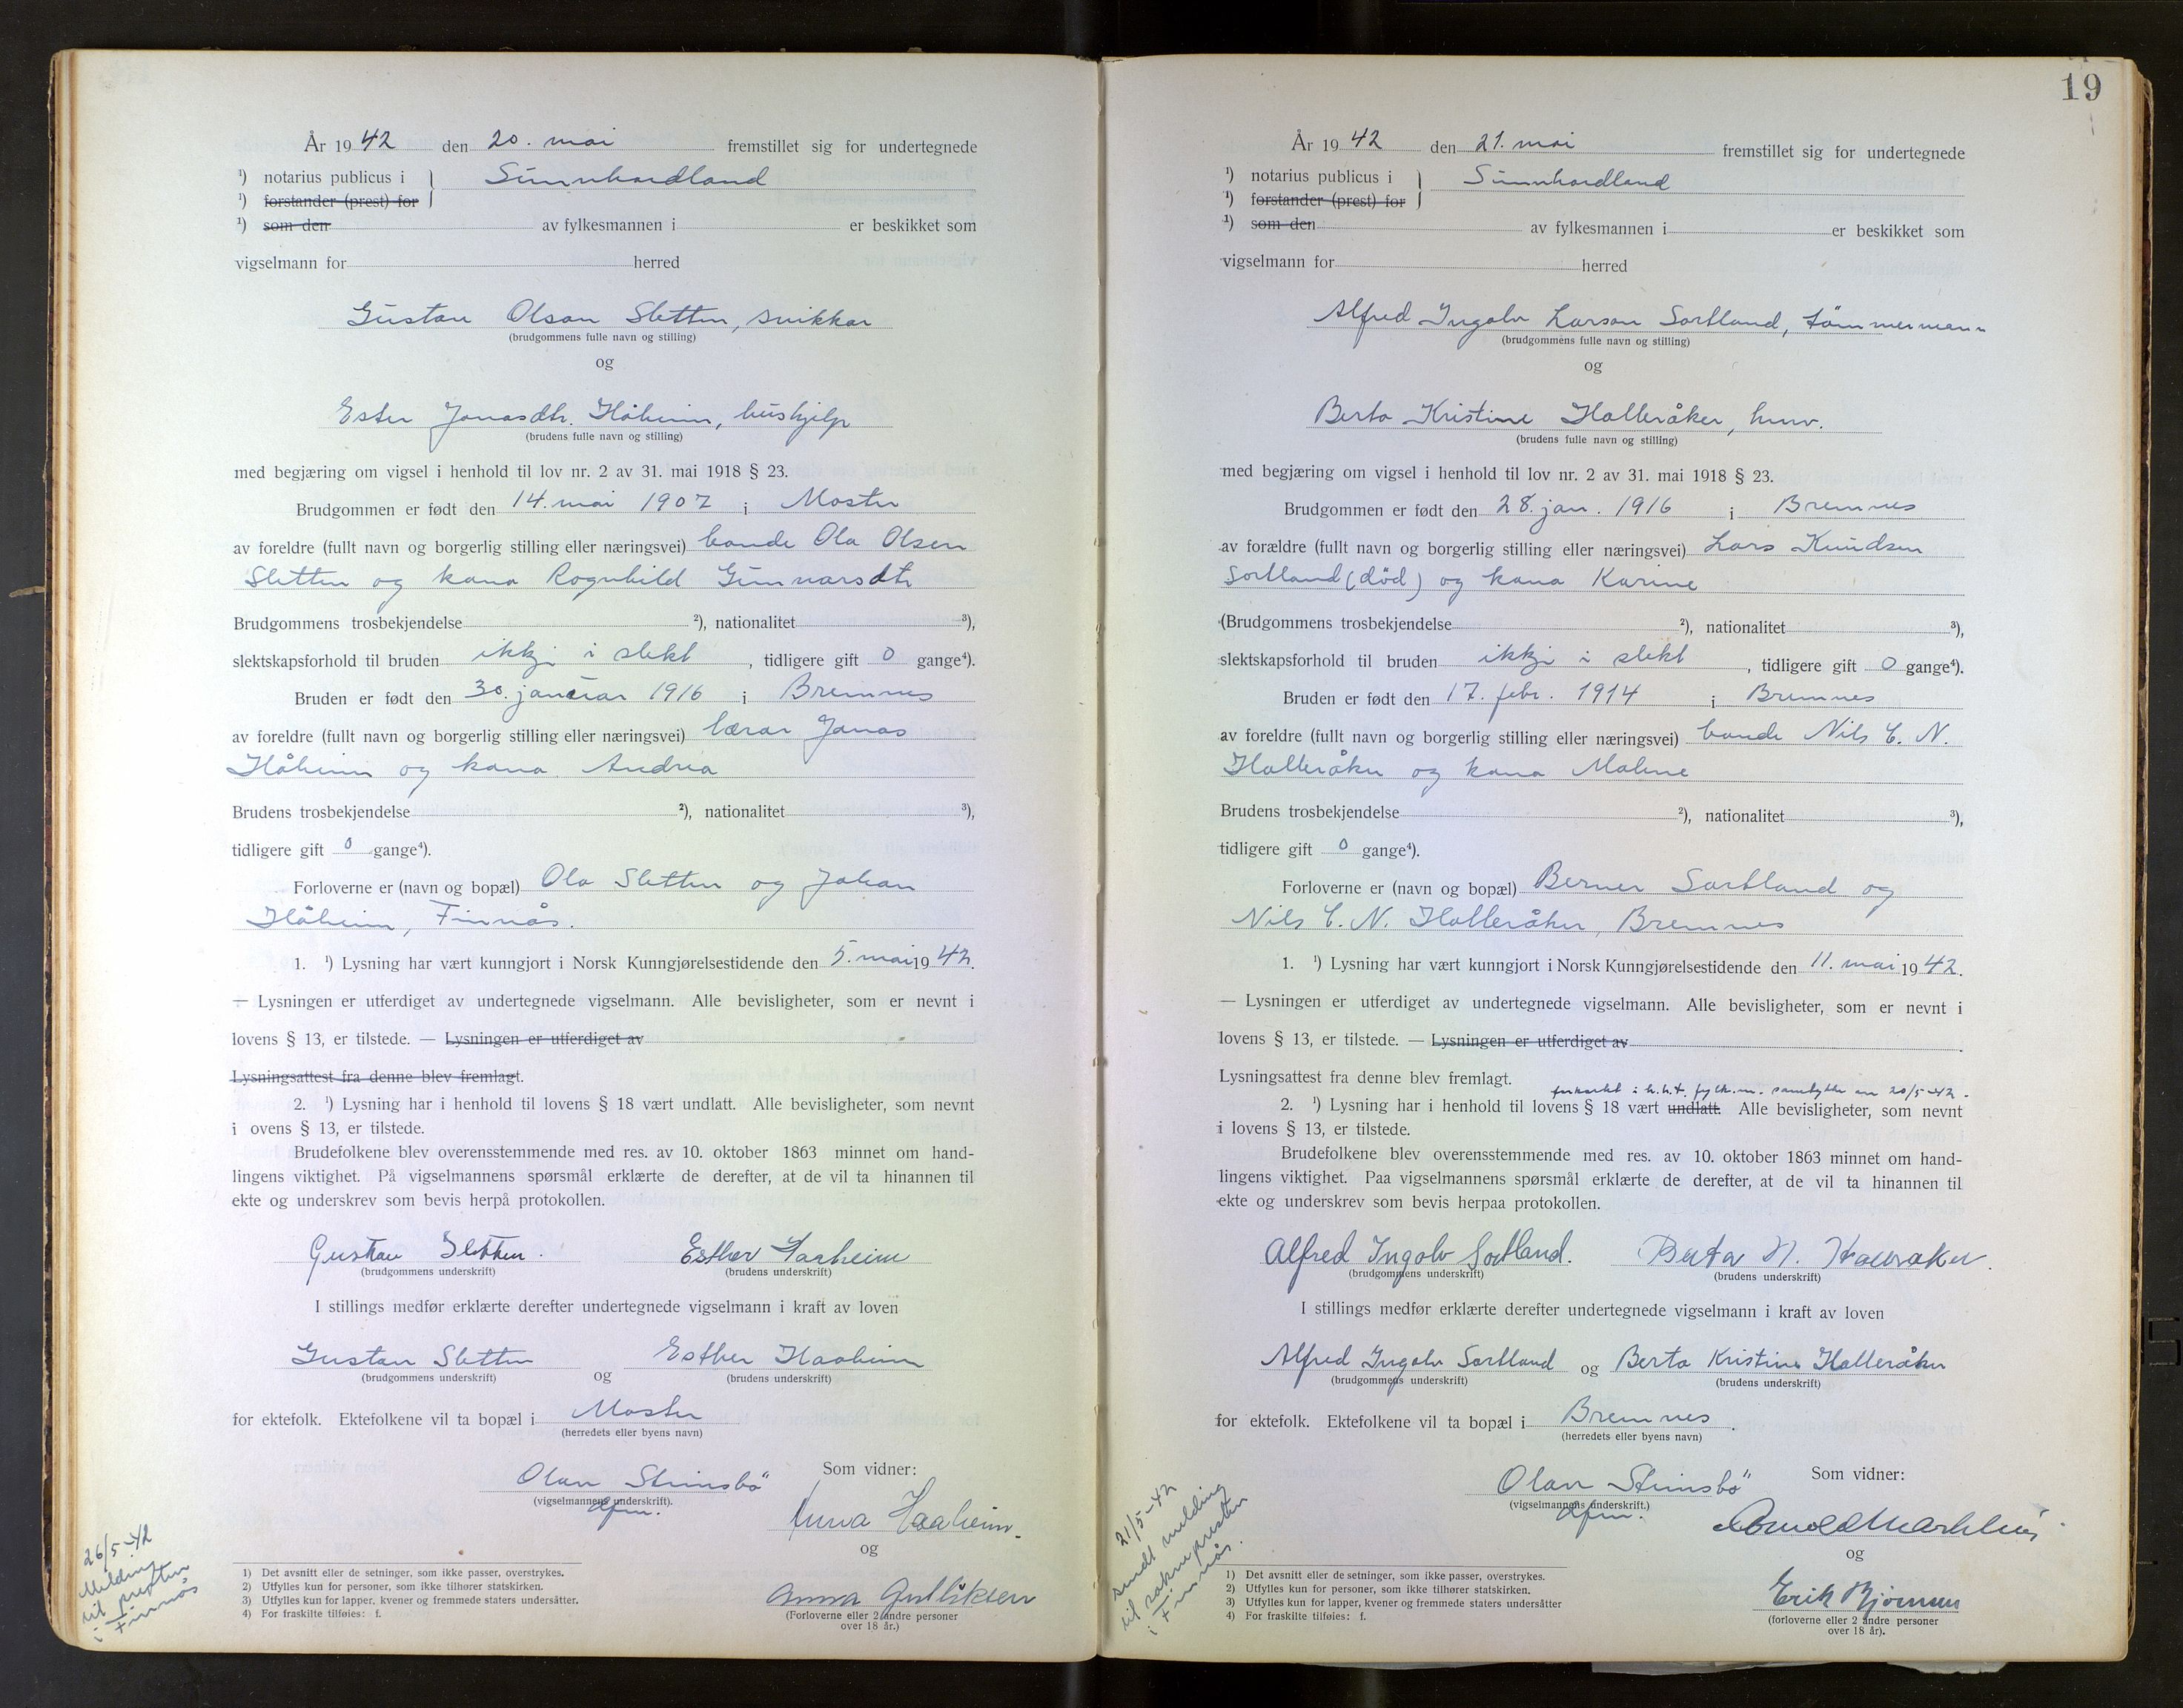 År 1942 den 20. mai fremstillet sig for undertegnede
¹) notarius publicus i } Sunnhordland
¹) forstander (prest) for
¹) som den av fylkesmannen i er beskikket som
vigselmann for herred
Gustav Olson Sletten, snikkar
(brudgommens fulle navn og stilling)
og
Ester Jonasdtr. Håheim, hushjelp
(brudens fulle navn og stilling)
med begjæring om vigsel i henhold til lov nr. 2 av 31. mai 1918 § 23.
Brudgommen er født den 14. mai 1907 i Moster
av foreldre (fullt navn og borgerlig stilling eller næringsvei) bonde Ola Olsen
Sletten og kona Rognhild Gunnarsdtr
Brudgommens trosbekjendelse ²), nationalitet ³),
slektskapsforhold til bruden ikkji i slekt , tidligere gift 0 gange⁴).
Bruden er født den 30. januar 1916 i Bremnes
av foreldre (fullt navn og borgerlig stilling eller næringsvei) lærar Jonas
Håheim og kona Andrea
Brudens trosbekjendelse ²), nationalitet ³),
tidligere gift 0 gange⁴).
Forloverne er (navn og bopæl) Ola Sletten og Johan
Håheim, Finnås.
1. ¹) Lysning har vært kunngjort i Norsk Kunngjørelsestidende den 5. mai 1942.
— Lysningen er utferdiget av undertegnede vigselmann. Alle bevisligheter, som er nevnt i
lovens § 13, er tilstede. — Lysningen er utferdiget av
Lysningsattest fra denne blev fremlagt.
2. ¹) Lysning har i henhold til lovens § 18 vært undlatt. Alle bevisligheter, som nevnt
i ovens § 13, er tilstede.
Brudefolkene blev overensstemmende med res. av 10. oktober 1863 minnet om hand-
lingens viktighet. På vigselmannens spørsmål erklærte de derefter, at de vil ta hinannen til
ekte og underskrev som bevis herpå protokollen.
Gustav Sletten. Esther Haaheim
(brudgommens underskrift) (brudens underskrift)
I stillings medfør erklærte derefter undertegnede vigselmann i kraft av loven
Gustav Sletten og Esther Haaheim
(brudgommens underskrift) (brudens underskrift)
for ektefolk. Ektefolkene vil ta bopæl i Moster
(herredets eller byens navn)
Olav Steinsbö Som vidner:
(vigselmannens underskrift).
dfm.
Anna Haaheim.
og
Anna Gulliksen
(Forloverne eller 2 andre personer
over 18 år.)
26/5-42
Melding
til presten
i Finnås
1) Det avsnitt eller de setninger, som ikke passer, overstrykes.
2) Utfylles kun for personer, som ikke tilhører statskirken.
3) Utfylles kun for lapper, kvener og fremmede staters undersåtter.
4) For fraskilte tilføies: f.
19
År 1942 den 21. mai fremstillet sig for undertegnede
¹) notarius publicus i } Sunnhordland
¹) forstander (prest) for
¹) som den av fylkesmannen i er beskikket som
vigselmann for herred
Alfred Ingolv Larson Sortland, tömmermann
(brudgommens fulle navn og stilling)
og
Berta Kristine Halleråker, husv.
(brudens fulle navn og stilling)
med begjæring om vigsel i henhold til lov nr. 2 av 31. mai 1918 § 23.
Brudgommen er født den 28. jan. 1916 i Bremnes
av forældre (fullt navn og borgerlig stilling eller næringsvei) Lars Knudsen
Sortland (död) og kona Karine
(Brudgommens trosbekjendelse ²), nationalitet ³),
slektskapsforhold til bruden ikkji i slekt , tidligere gift 0 gange⁴).
Bruden er født den 17. febr. 1914 i Bremnes
av foreldre (fullt navn og borgerlig stilling eller næringsvei) bonde Nils C. N.
Halleråker og kona Malene
Brudens trosbekjendelse ²), nationalitet ³),
tidligere gift 0 gange⁴).
Forloverne er (navn og bopæl) Berner Sortland og
Nils C. N. Halleråker, Bremnes
1. ¹) Lysning har vært kunngjort i Norsk Kunngjørelsestidende den 11. mai 1942.
— Lysningen er utferdiget av undertegnede vigselmann. Alle bevisligheter, som er nevnt i
lovens § 13, er tilstede. — Lysningen er utferdiget av .
Lysningsattest fra denne blev fremlagt.
forkortet i h.h.t. fylk.m. samtykke av 20/5-42.
2. ¹) Lysning har i henhold til lovens § 18 vært undlatt. Alle bevisligheter, som nevnt
i lovens § 13, er tilstede.
Brudefolkene blev overensstemmende med res. av 10. oktober 1863 minnet om hand-
lingens viktighet. Paa vigselmannens spørsmål erklærte de derefter, at de vil ta hinannen til
ekte og underskrev som bevis herpaa protokollen.
Alfred Ingolv Sortland. Berta N. Halleraker.
(brudgommens underskrift) (brudens underskrift)
I stillings medfør erklærte derefter undertegnede vigselmann i kraft av loven
Alfred Ingolv Sortland og Berta Kristine Halleråker
(brudgommens underskrift) (brudens underskrift)
for ektefolk. Ektefolkene vil ta bopæl i Bremnes .
(herredets eller byens navn)
Olav Steinsbö Som vidner:
(vigselmannens underskrift.)
dfm.
og
Erik Bjørnsen
(forloverne eller 2 andre personer
over 18 år).
21/5-42
sendt melding
til soknepresten
i Finnås.
1) Det avsnitt eller de setninger, som ikke passer, overstrykes.
2) Utfylles kun for personer, som ikke tilhører statskirken.
3) Utfylles kun for lapper, kvener og fremmede staters undersåtter
4) For fraskilte tilføies: f.